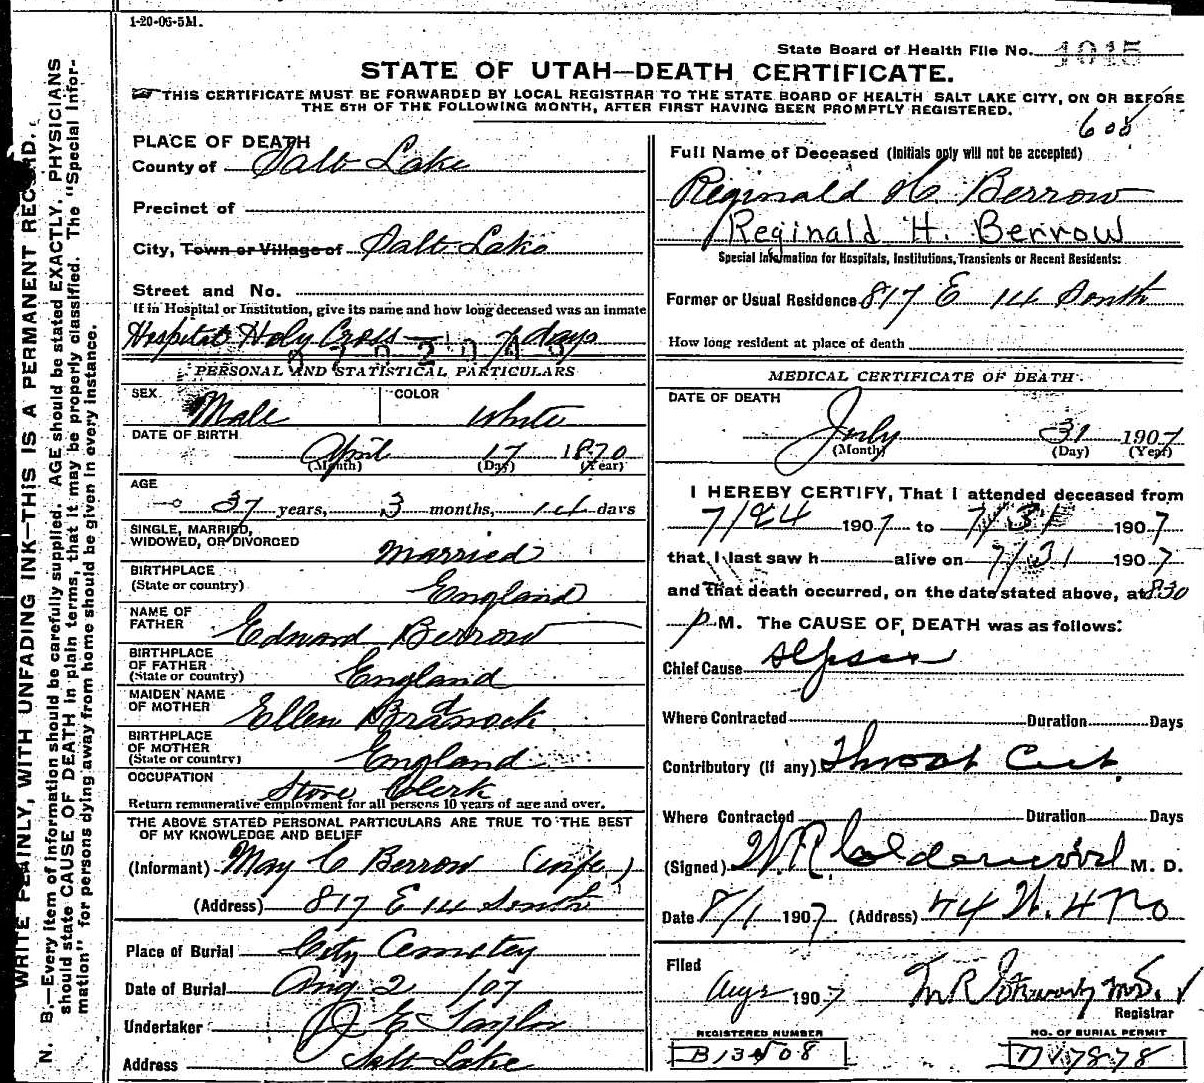 1-20-06-5M.
State Board of Health File No. 1015
STATE OF UTAH—DEATH CERTIFICATE.
THIS CERTIFICATE MUST BE FORWARDED BY LOCAL REGISTRAR TO THE STATE BOARD OF HEALTH SALT LAKE CITY, ON OR BEFORE
THE 5TH OF THE FOLLOWING MONTH, AFTER FIRST HAVING BEEN PROMPTLY REGISTERED.
WRITE PLAINLY, WITH UNFADING INK—THIS IS A PERMANENT RECORD.
N. B.—Every item of information should be carefully supplied. AGE should be stated EXACTLY. PHYSICIANS
should state CAUSE OF DEATH in plain terms, that it may be properly classified. The "Special Infor-
mation" for persons dying away from home should be given in every instance.
PLACE OF DEATH
County of Salt Lake
Precinct of
City, Town or Village of Salt Lake
Street and No.
If in Hospital or Institution, give its name and how long deceased was an inmate
Hospital Holy Cross — 7 days
PERSONAL AND STATISTICAL PARTICULARS
SEX Male COLOR White
DATE OF BIRTH
April 17 1870
(Month) (Day) (Year)
AGE
37 years, 3 months, 14 days
SINGLE, MARRIED,
WIDOWED, OR DIVORCED Married
BIRTHPLACE
(State or country) England
NAME OF
FATHER Edward Berrow
BIRTHPLACE
OF FATHER
(State or country) England
MAIDEN NAME
OF MOTHER Ellen Bradnock
BIRTHPLACE
OF MOTHER
(State or country) England
OCCUPATION Store Clerk
Return remunerative employment for all persons 10 years of age and over.
THE ABOVE STATED PERSONAL PARTICULARS ARE TRUE TO THE BEST
OF MY KNOWLEDGE AND BELIEF
(Informant) May C Berrow (wife)
(Address) 817 E 14 South
Place of Burial City Cemetery
Date of Burial Aug 2 /07
Undertaker E Taylor
Address Salt Lake
600
Full Name of Deceased (Initials only will not be accepted)
Reginald H Berrow
Reginald H. Berrow
Special Information for Hospitals, Institutions, Transients or Recent Residents:
Former or Usual Residence 817 E 14 South
How long resident at place of death
MEDICAL CERTIFICATE OF DEATH.
DATE OF DEATH
July 31 1907
(Month) (Day) (Year)
I HEREBY CERTIFY, That I attended deceased from
7/24 1907 to 7/31 1907
that I last saw h alive on 7/31 1907
and that death occurred, on the date stated above, at 830
p M. The CAUSE OF DEATH was as follows:
Chief Cause Sepsis
Where Contracted Duration Days
Contributory (if any) Throat Cut
Where Contracted Duration Days
(Signed) W. R. Calderwood M. D.
Date 8/1 1907 (Address) 44 W. 4 No
Filed
Aug 2 1907 M.D.
Registrar
REGISTERED NUMBER NO. OF BURIAL PERMIT
B13408 7878